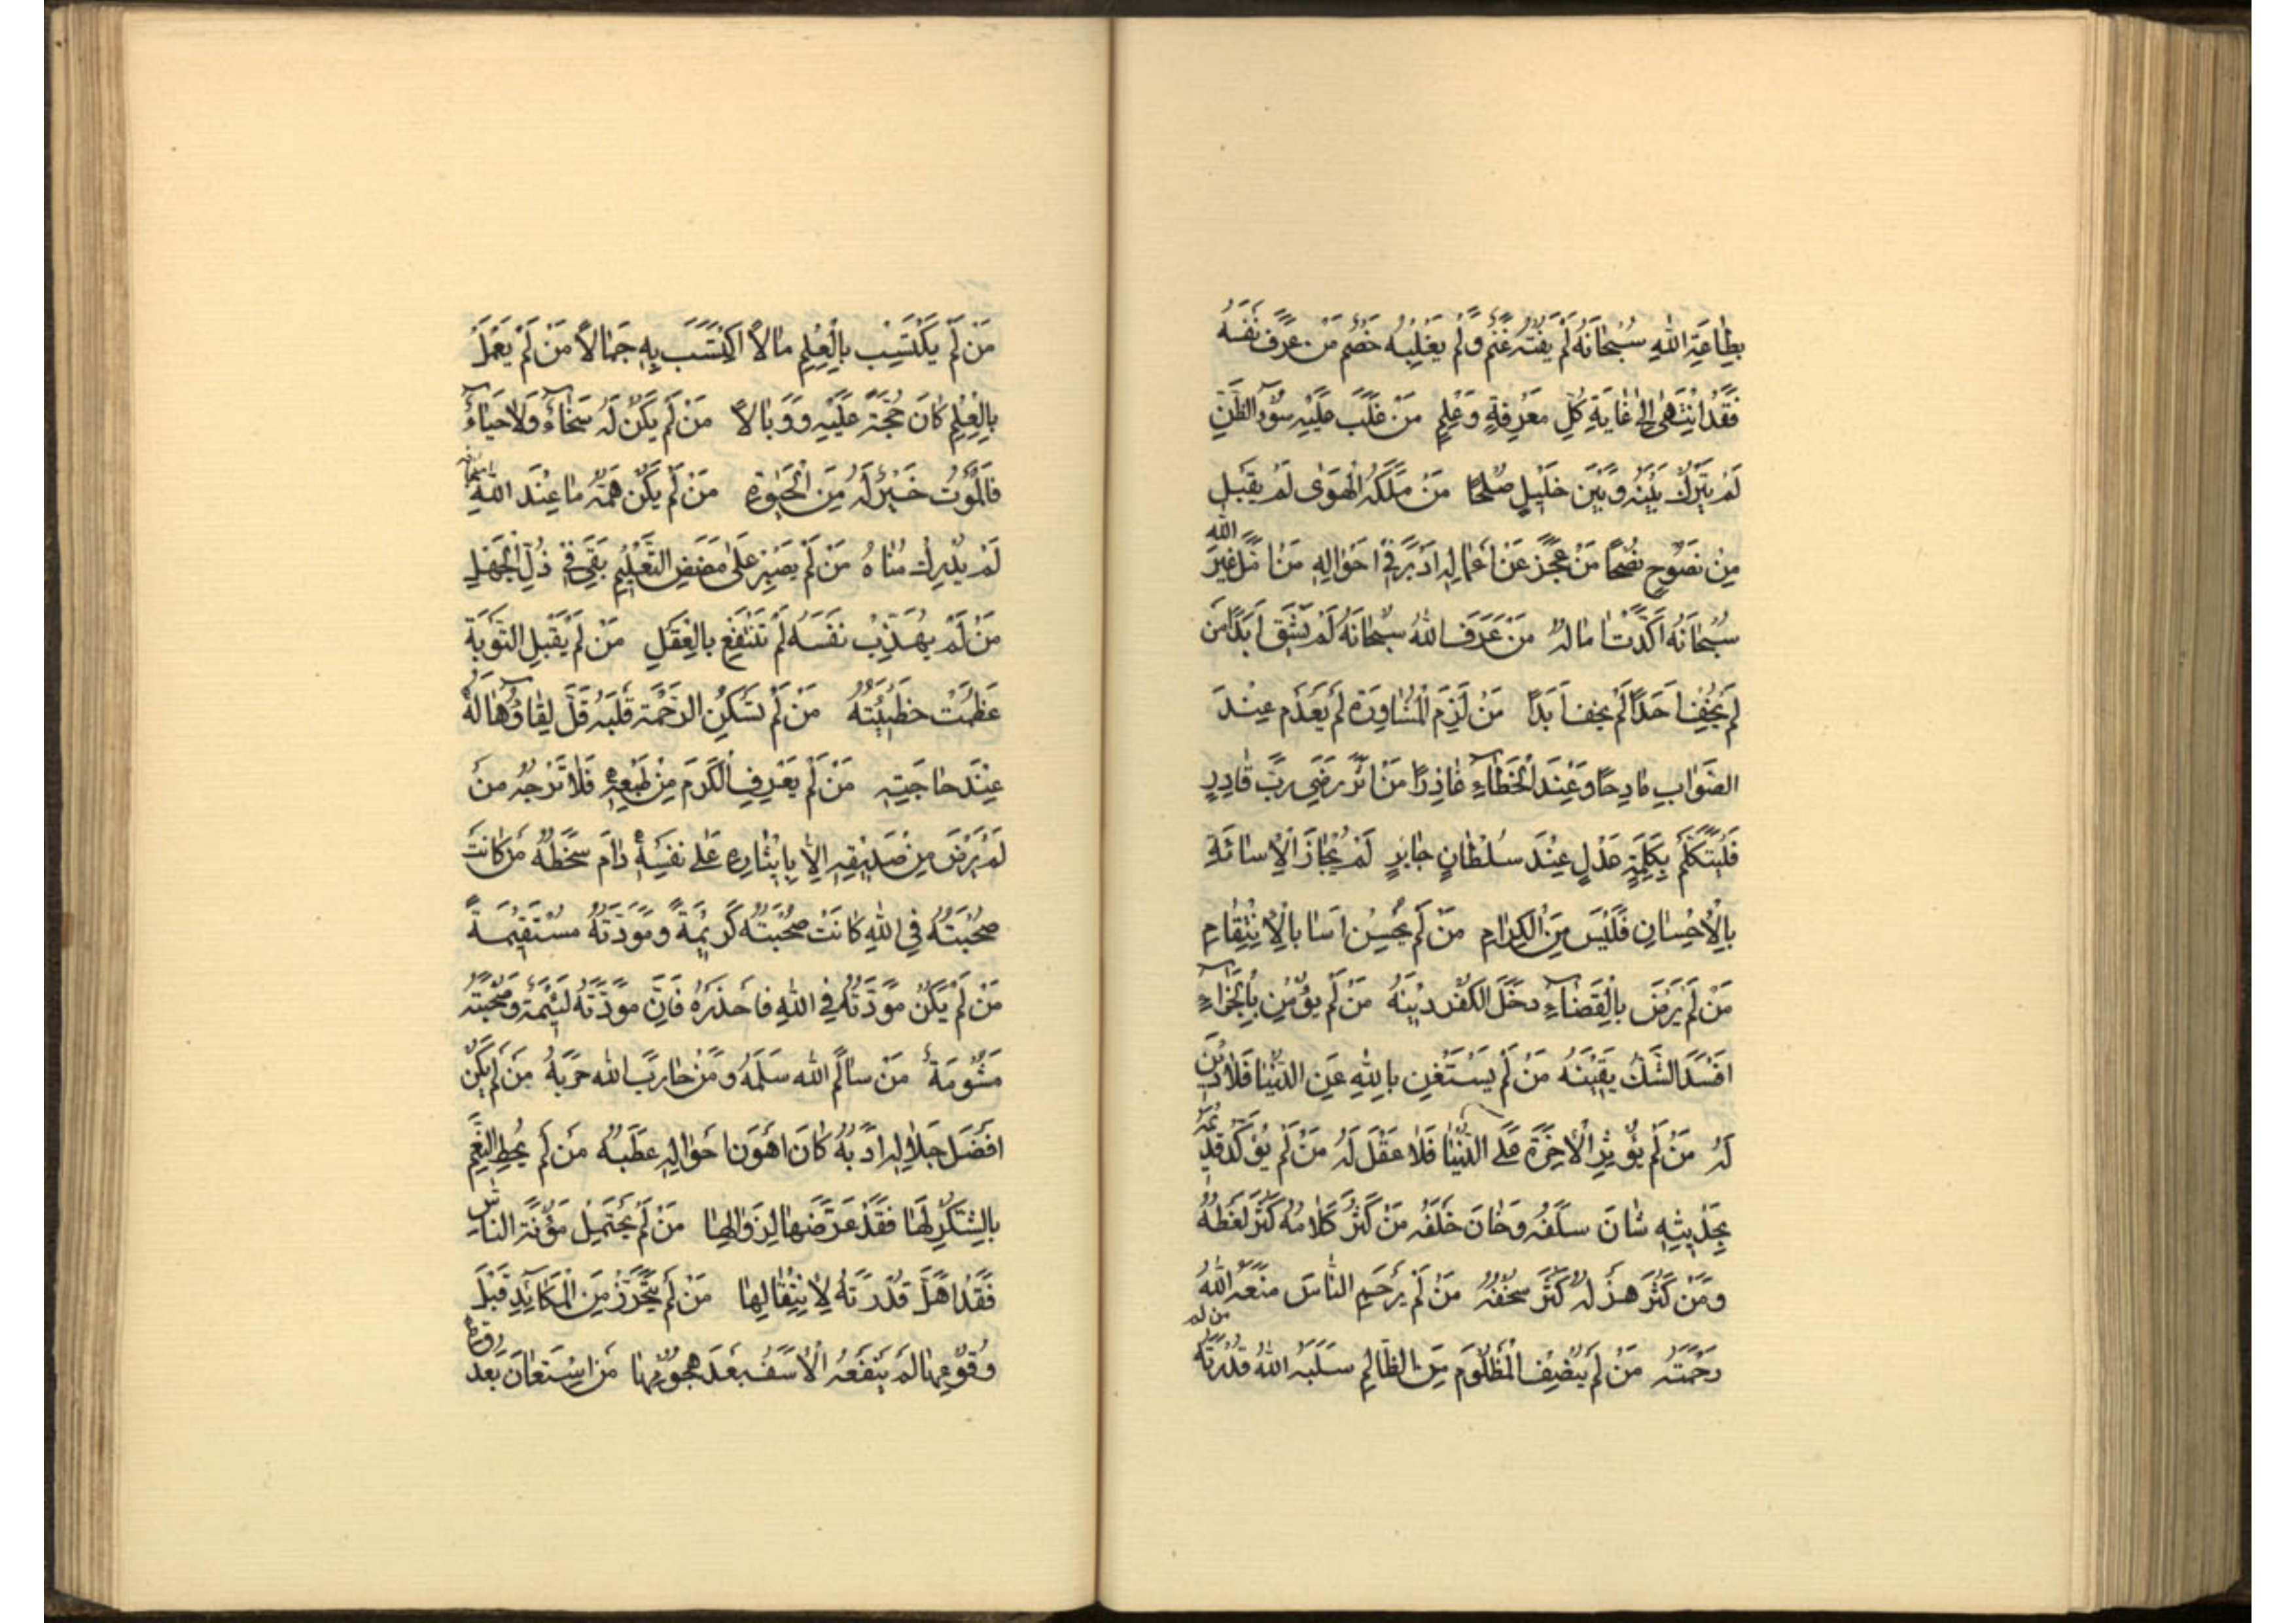 بِطَاعَةِ اللهِ سُبْحَانَهُ لَمْ يَفُتْهُ غُنْمٌ وَلَمْ يَغْلِبْهُ خَصْمٌ مَنْ عَرَفَ نَفْسَهُ
فَقَدْ انْتَهٰى اِلٰى غَايَةِ كُلِّ مَعْرِفَةٍ وَعِلْمٍ مَنْ غَلَبَ عَلَيْهِ سُوءُ الظَّنِّ
لَمْ يَتْرُكْ بَيْنَهُ وَبَيْنَ خَلِيلٍ صُلْحًا مَنْ مَلَكَهُ الْهَوٰى لَمْ يَقْبَلْ
مِنْ نَصُوحٍ نُصْحًا مَنْ عَجَزَ عَنْ اَعْمَالِهِ اَدْبَرَ فِي اَحْوَالِهِ مَنْ اَمَّلَ غَيْرَ اللهِ
سُبْحَانَهُ اَكْذَبَ اٰمَالَهُ مَنْ عَرَفَ اللهَ سُبْحَانَهُ لَمْ يَشْقَ اَبَدًا مَنْ
لَمْ يُخِفْ اَحَدًا لَمْ يَخَفْ اَبَدًا مَنْ لَزِمَ الْمُشَاوَرَةَ لَمْ يَعْدَمْ عِنْدَ
الصَّوَابِ مَادِحًا وَعِنْدَ الْخَطَاءِ عَاذِرًا مَنْ اٰثَرَ رِضَى رَبٍّ قَادِرٍ
فَلْيَتَكَلَّمْ بِكَلِمَةِ عَدْلٍ عِنْدَ سُلْطَانٍ جَابِرٍ لَمْ يُجَازَ الْاِسَائَةَ
بِالْاِحْسَانِ فَلَيْسَ مِنَ الْكِرَامِ مَنْ لَمْ يُحْسِنْ اَسَا بِالْاِنْتِقَامِ
مَنْ لَمْ يَرْضَ بِالْقَضَاءِ دَخَلَ الْكُفْرُ دِينَهُ مَنْ لَمْ يُؤْمِنْ بِالْجَزَاءِ
اَفْسَدَ الشَّكُّ يَقِينَهُ مَنْ لَمْ يَسْتَغْنِ بِاللهِ عَنِ الدُّنْيَا فَلَا دِينَ
لَهُ مَنْ لَمْ يُؤْثِرِ الْاٰخِرَةَ عَلَى الدُّنْيَا فَلَا عَقْلَ لَهُ مَنْ لَمْ يُؤَكِّدْ قَدِيمَهُ
بِحَدِيثِهِ شَانَ سَلَفَهُ وَخَانَ خَلَفَهُ مَنْ كَثُرَ كَلَامُهُ كَثُرَ لَغَطُهُ
وَمَنْ كَثُرَ هَزْلُهُ كَثُرَ سُخْفُهُ مَنْ لَمْ يَرْحَمِ النَّاسَ مَنَعَهُ اللهُ
رَحْمَتَهُ مَنْ لَمْ يُنْصِفِ الْمَظْلُومَ مِنَ الظَّالِمِ سَلَبَهُ اللهُ قُدْرَتَهُ
من لم
مَنْ لَمْ يَكْتَسِبْ بِالْعِلْمِ مَالًا اكْتَسَبَ بِهِ جَمَالًا مَنْ لَمْ يَعْمَلْ
بِالْعِلْمِ كَانَ حُجَّةً عَلَيْهِ وَوَبَالًا مَنْ لَمْ يَكُنْ لَهُ سَخَاءٌ وَلَا حَيَاءٌ
فَالْمَوْتُ خَيْرٌ لَهُ مِنَ الْحَيٰوةِ مَنْ لَمْ يَكُنْ هِمَّتُهُ مَا عِنْدَ اللهِ سُبْحَانَهُ
لَمْ يُدْرِكْ مُنَاهُ مَنْ لَمْ يَصْبِرْ عَلٰى مَضَضِ التَّعْلِيمِ بَقِيَ فِي ذُلِّ الْجَهْلِ
مَنْ لَمْ يُهَذِّبْ نَفْسَهُ لَمْ يَنْتَفِعْ بِالْعَقْلِ مَنْ لَمْ يَقْبَلِ التَّوْبَةَ
عَظُمَتْ خَطِيئَتُهُ مَنْ لَمْ تَسْكُنِ الرَّحْمَةُ قَلْبَهُ قَلَّ لِقَاؤُهَا لَهُ
عِنْدَ حَاجَتِهِ مَنْ لَمْ يَعْرِفِ الْكَرَمَ مِنْ طَبْعِهِ فَلَا تَرْجُهُ مَنْ
لَمْ يَرْضَ مِنْ صَدِيقِهِ اِلَّا بِاِيثَارِهِ عَلٰى نَفْسِهِ دَامَ سَخَطُهُ مَنْ كَانَتْ
صُحْبَتُهُ فِي اللهِ كَانَتْ صُحْبَتُهُ كَرِيمَةً وَمَوَدَّتُهُ مُسْتَقِيمَةً
مَنْ لَمْ يَكُنْ مَوَدَّتُهُ فِي اللهِ فَاحْذَرْهُ فَاِنَّ مَوَدَّتَهُ لَئِيمَةٌ وَصُحْبَتَهُ
مَشْوُمَةٌ مَنْ سَالَمَ اللهَ سَلَّمَهُ وَمَنْ حَارَبَ اللهَ حَرَبَهُ مَنْ لَمْ يَكُنْ
اَفْضَلَ خِلَالِهِ اَدَبُهُ كَانَ اَهْوَنَ اَحْوَالِهِ عَطَبُهُ مَنْ لَمْ يُحِطِ النِّعَمَ
بِالشُّكْرِ لَهَا فَقَدْ عَرَّضَهَا لِزَوَالِهَا مَنْ لَمْ يَحْتَمِلْ مَؤُنَةَ النَّاسِ
فَقَدْ اَهَّلَ قُدْرَتَهُ لِاِنْتِقَالِهَا مَنْ لَمْ يَتَحَرَّزْ مِنَ الْمَكَائِدِ قَبْلَ
وُقُوعِهَا لَمْ يَنْفَعْهُ الْاَسَفُ بَعْدَ هُجُومِهَا مَنْ اسْتَعَانَ بَعْدَ